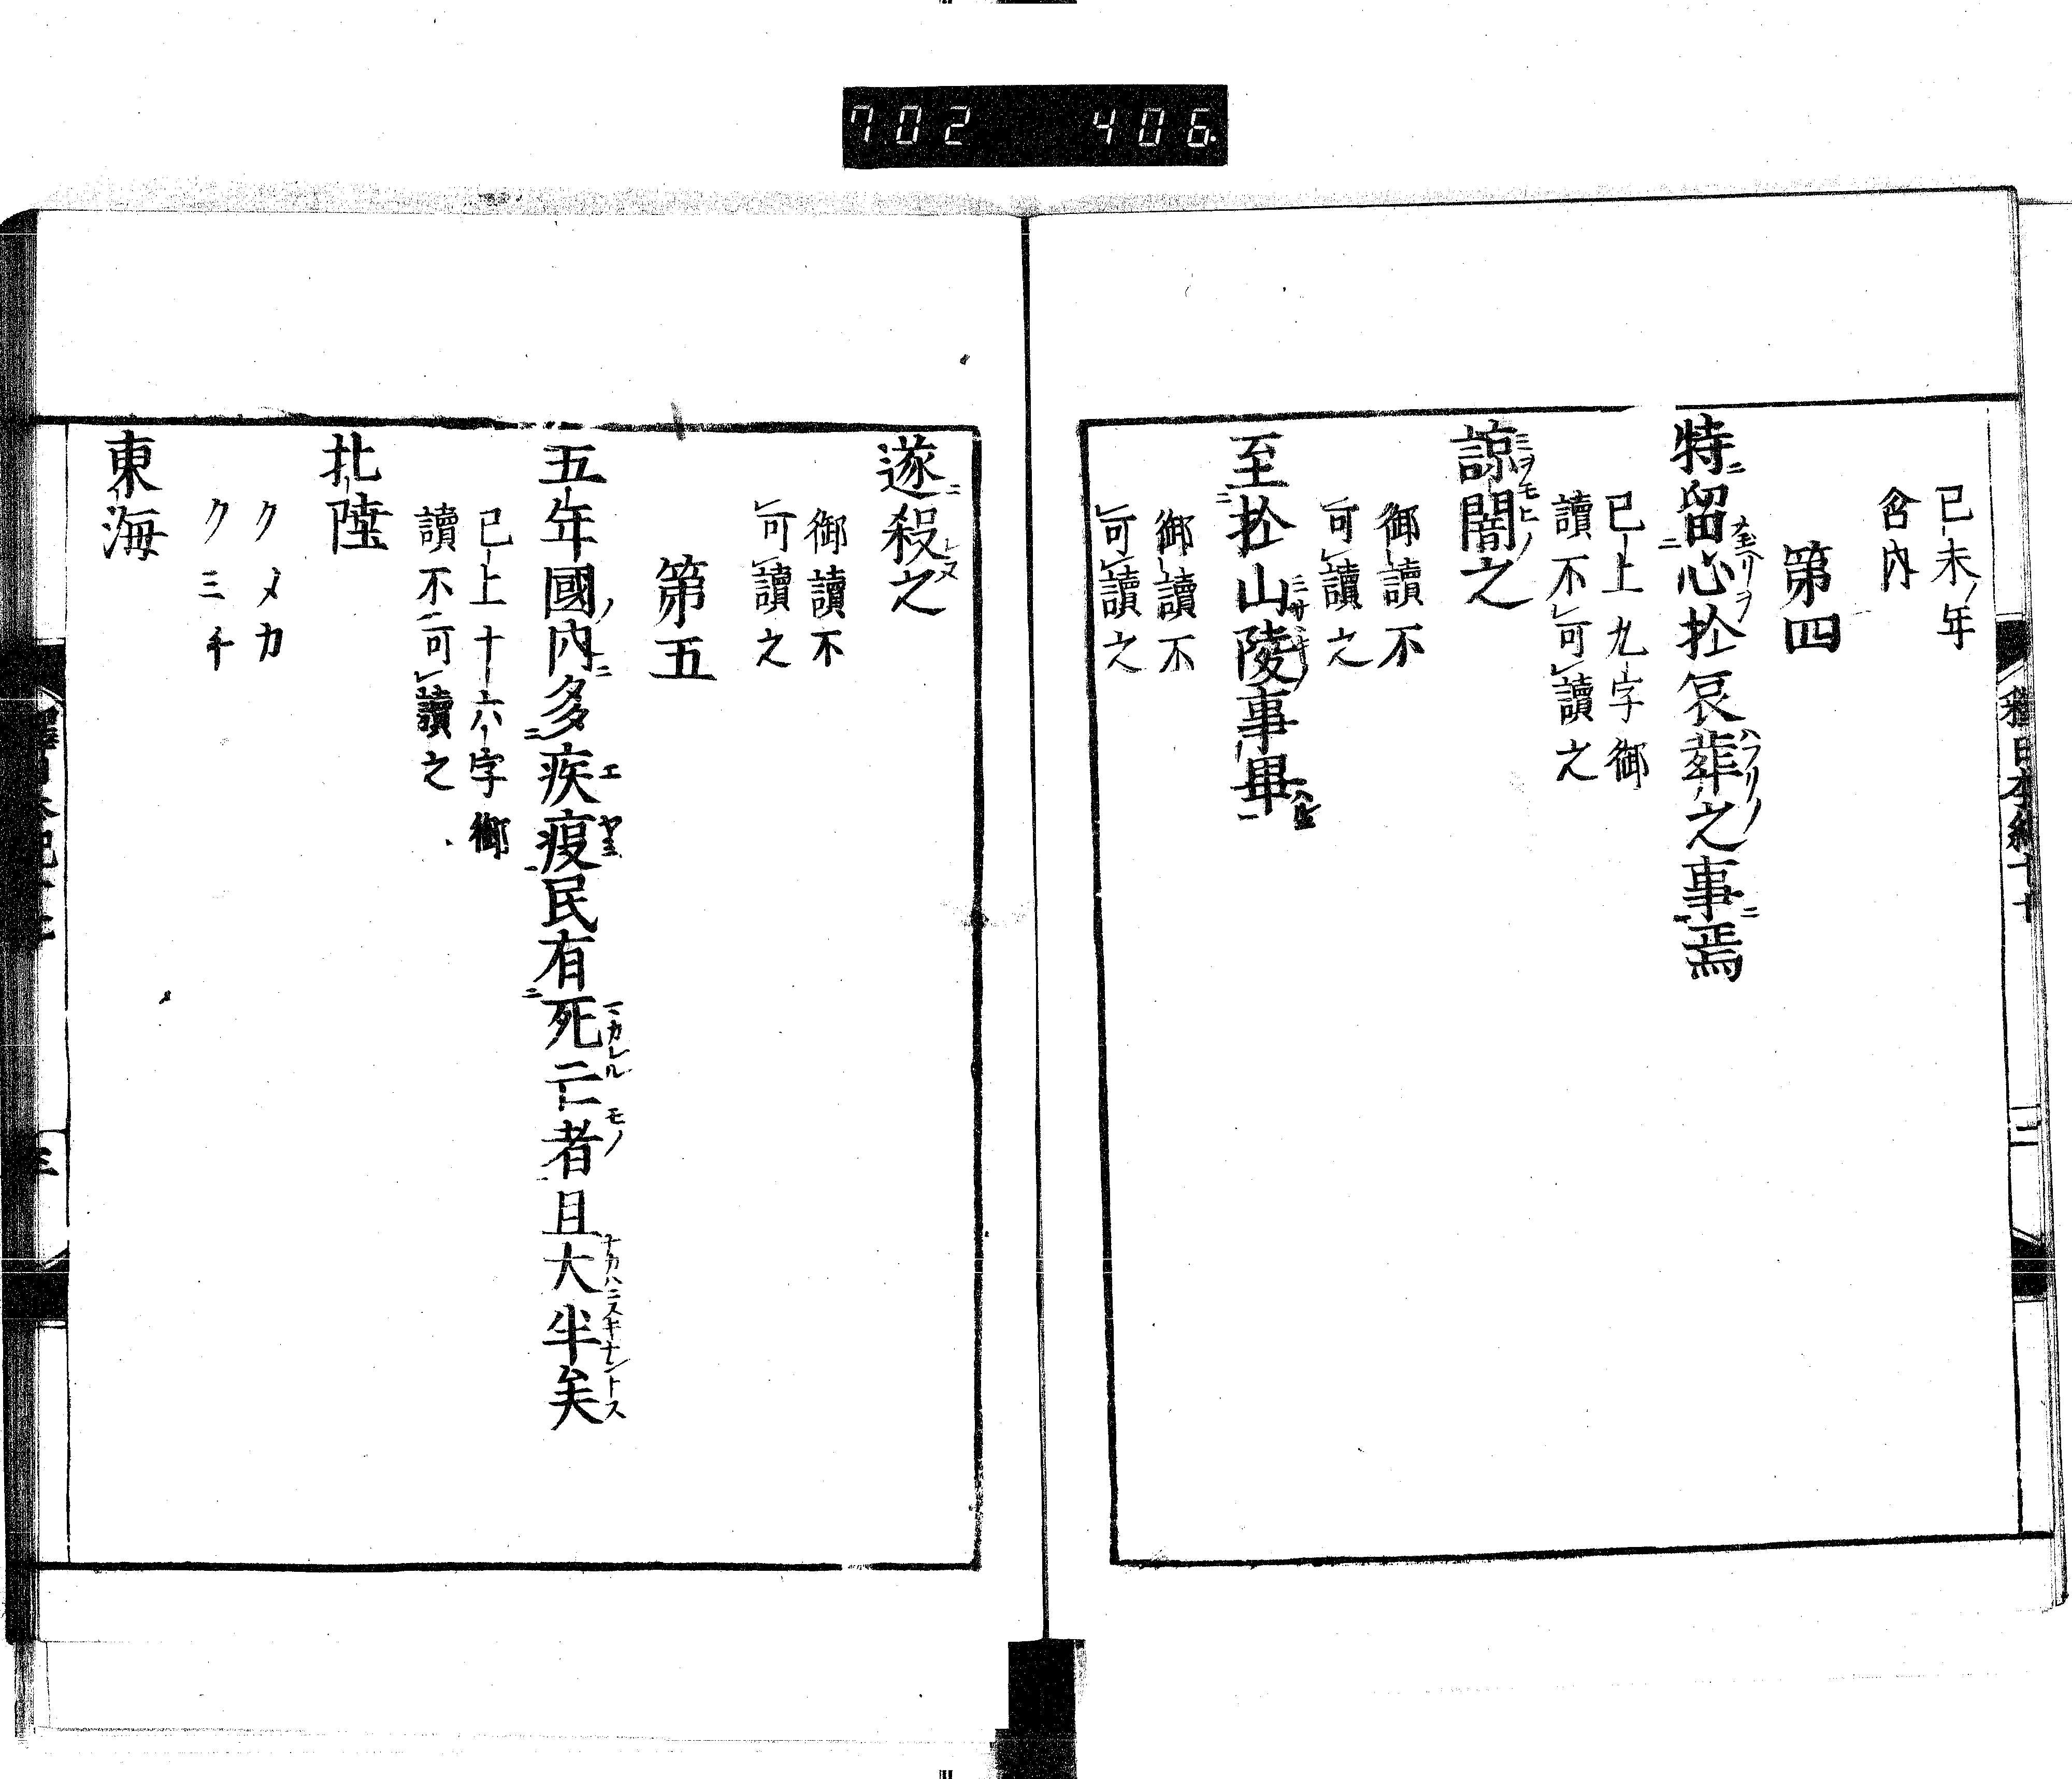 702 406
己未ノ年
含内
第四
特留心於哀葬之事焉
已上九字御
讀不可讀之
諒闇之
御讀不
可讀之
至於山陵事畢
御讀不
可讀之
釋日本紀十七
二
遂殺之
御讀不
可讀之
第五
五年國内多疾疫民有死亡者且大半矣
已上十六字御
讀不可讀之
北陸
クメカ
クミチ
東海
三